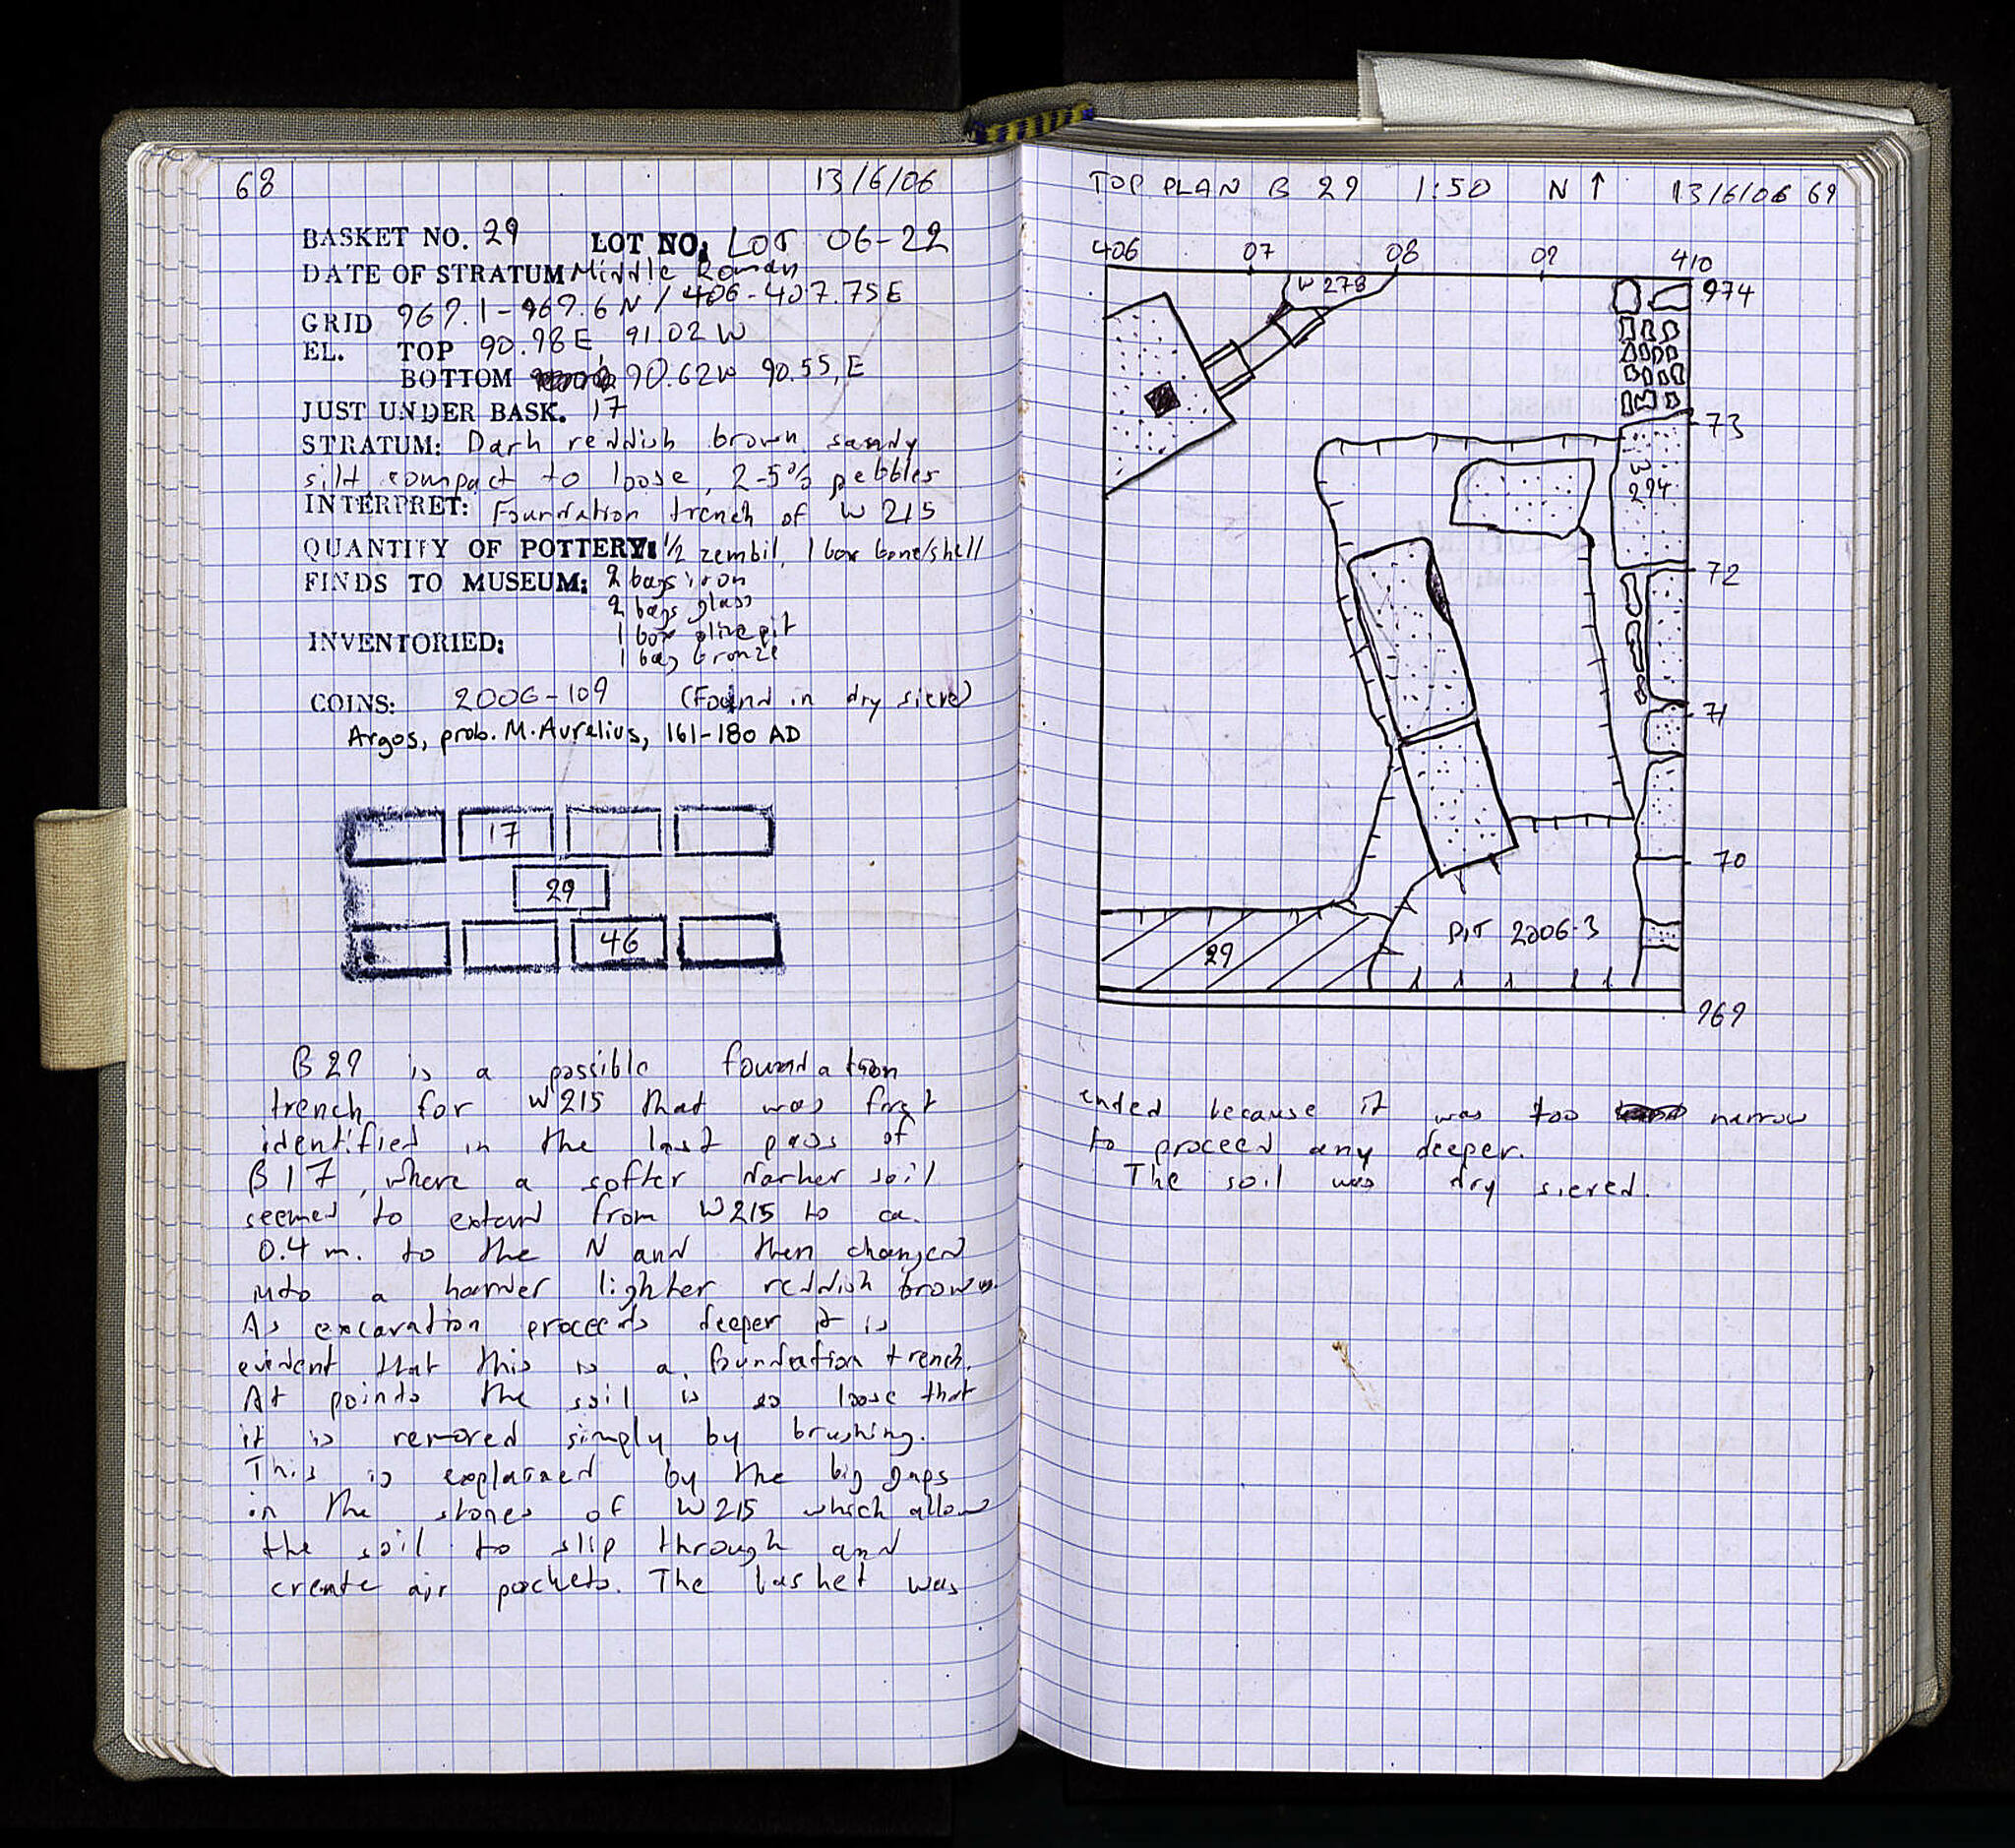 68 13/6/06
BASKET NO. 29 LOT NO: LOT 06-22
DATE OF STRATUM Middle Roman
GRID 969.1-969.6 N / 406-407.75 E
EL. TOP 90.98 E, 91.02 W
BOTTOM 90.62 W 90.55, E
JUST UNDER BASK. 17
STRATUM: Dark reddish brown sandy
silt compact to loose, 2-5% pebbles
INTERPRET: Foundation trench of W 215
QUANTITY OF POTTERY: 1/2 zembil, 1 box bone/shell
FINDS TO MUSEUM: 2 bags iron
2 bags glass
1 box olive pit
INVENTORIED:
1 bag bronze
COINS: 2006-109 (Found in dry sieve)
Argos, prob. M. Aurelius, 161-180 AD
17
29
46
B 29 is a possible foundation
trench for W 215 that was first
identified in the last pass of
B 17, where a softer darker soil
seemed to extend from W 215 to ca.
0.4 m. to the N and then changed
into a harder lighter reddish brown.
As excavation proceeds deeper it is
evident that this is a foundation trench.
At points the soil is so loose that
it is removed simply by brushing.
This is explained by the big gaps
in the stones of W 215 which allow
the soil to slip through and
create air pockets. The basket was
TOP PLAN B 29 1:50 N ↑ 13/6/06 69
406 07 08 09 410
W 278
974
73
W
294
72
71
70
PIT 2006-3
29
969
ended because it was too narrow
to proceed any deeper.
The soil was dry sieved.